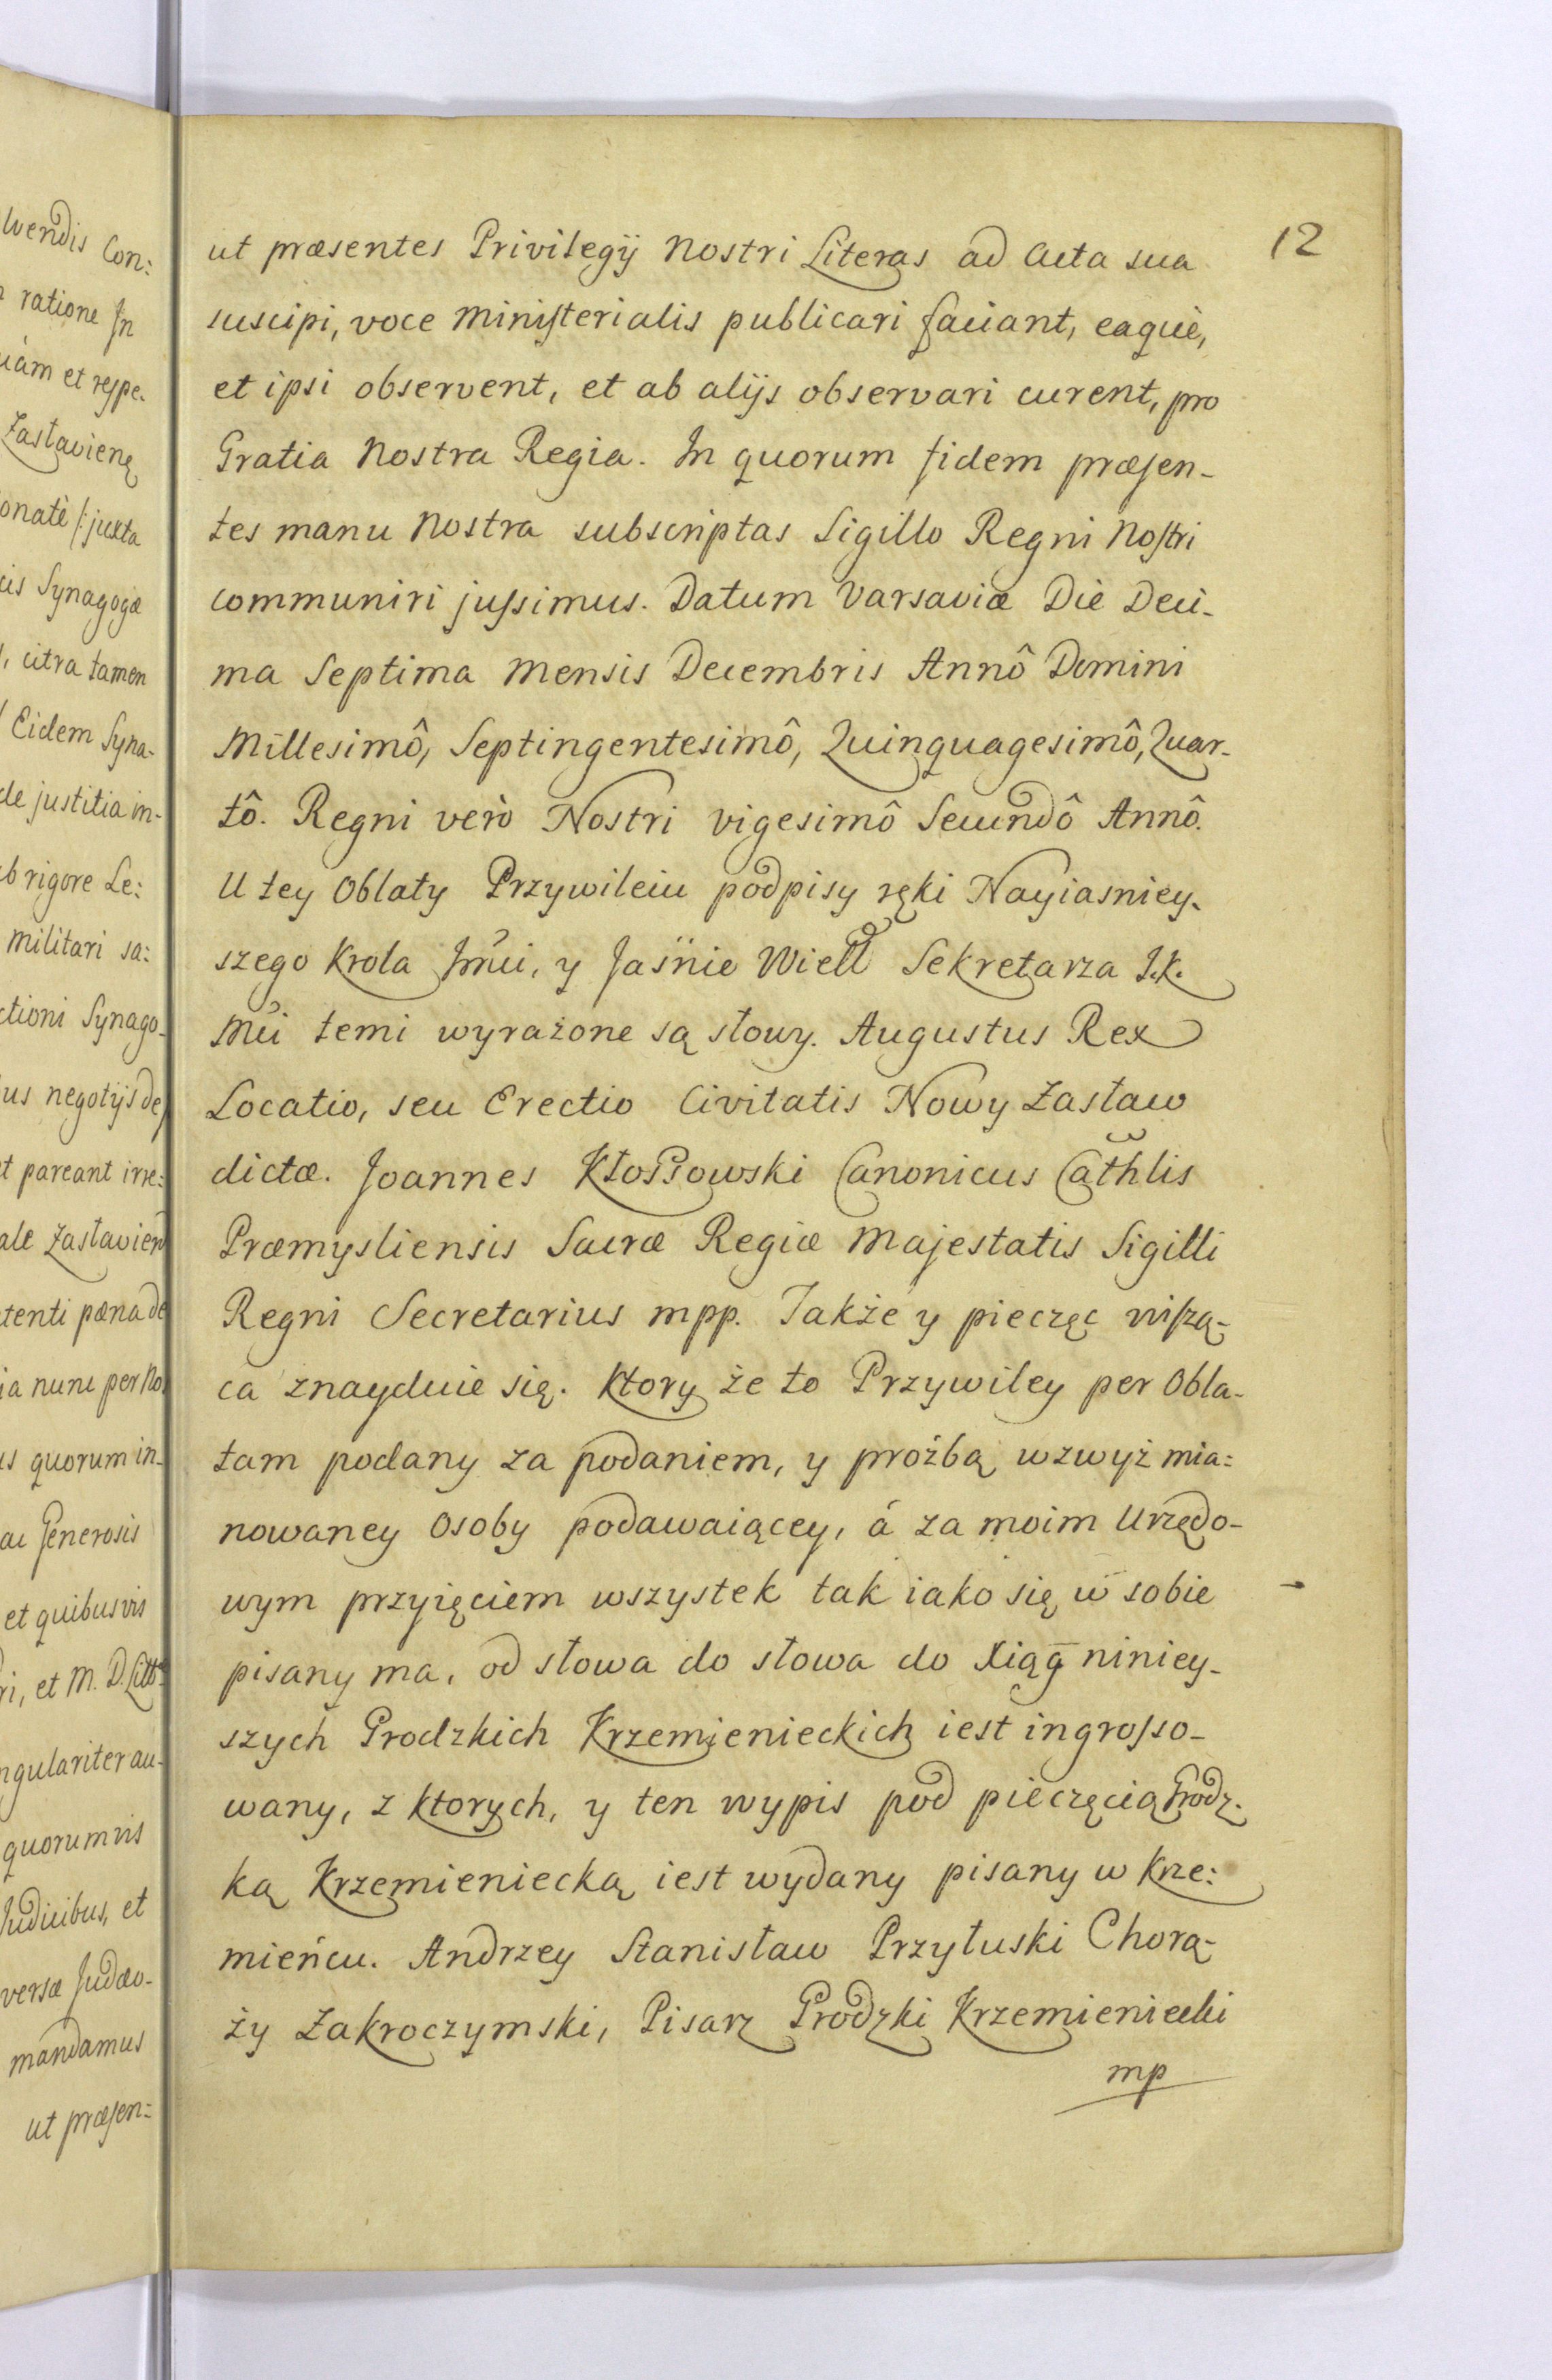 lvendis Con:
ratione In
uàm et respe-
Zasłavienę
onatè /:juxta
cis Synagogæ
, citra tamen
Eidem Syna-
de justitia in-
b rigore Le:
militari sa:
ctioni Synago-
us negotijs de
t pareant irre:
ale Zasłavien
tenti pæna de
ia nunc per No
us quorum in-
ac Generosis
et quibusvis
ri, et M. D. Litt
ngulariter au-
quorumvis
Judicibus, et
versæ Judæo-
mandamus
ut præsen:
12
ut præsentes Privilegij Nostri Literas ad Acta sua
suscipi, voce Ministerialis publicari faciant, eaquè,
et ipsi observent, et ab alijs observari curent, pro
Gratia Nostra Regia. In quorum fidem præsen-
tes manu Nostra subscriptas Sigillo Regni Nostri
communiri jussimus. Datum Varsaviæ Diè Deci-
ma Septima Mensis Decembris Annô Domini
Millesimô, Septingentesimô, Quinquagesimô, Quar-
tô. Regni verò Nostri vigesimô Secundô Annô.
U tey Oblaty Przywileiu podpisy ręki Nayiasniey-
szego Krola Jmći, y Jaśnie Wiell Sekretarza J.K.
Mći temi wyrażone są słowy. Augustus Rex
Locatio, seu Erectio Civitatis Nowy Zasław
dictæ. Joannes Kłossowski Canonicus Cathlis
Præmysliensis Sacræ Regiæ Majestatis Sigilli
Regni Secretarius mpp. Także y pieczęc wiszą-
ca znayduie się. Ktory że to Przywiley per Obla-
tam podany za podaniem, y proźbą wzwyż mia:
nowaney Osoby podawaiącey, á za moim Urzędo-
wym przyięciem wszystek tak iako się w sobie
pisany ma, od słowa do słowa do Xiąg niniey-
szych Grodzkich Krzemienieckich iest ingrosso-
wany, z ktorych, y ten wypis pod pieczęcią Grodz-
ką Krzemieniecką iest wydany pisany w Krze:
mieńcu. Andrzey Stanisław Przyłuski Chorą-
ży Zakroczymski, Pisarz Grodzki Krzemieniecki
mp